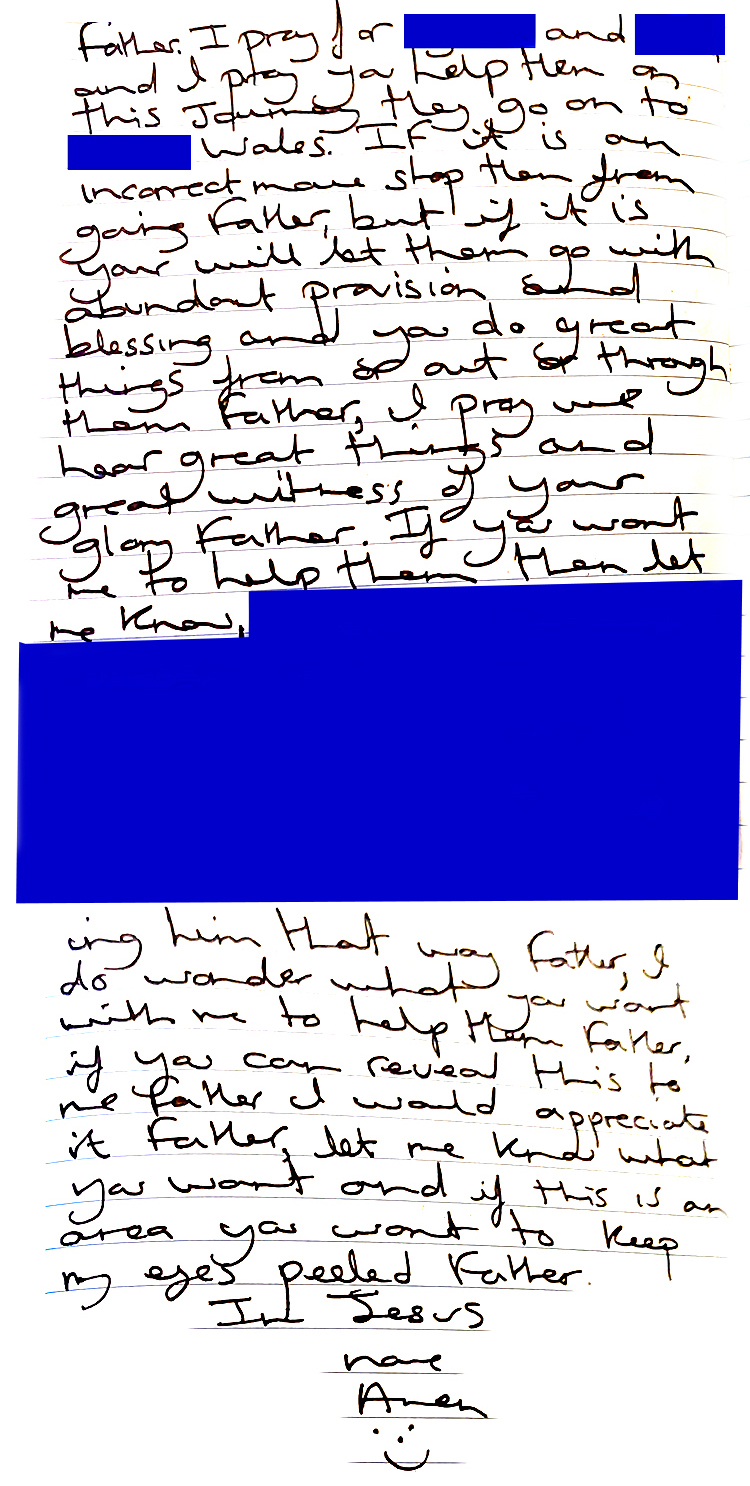 Father. I pray for and
and I pray you help them on
this Journey they go on to
Wales. If it is an
incorrect move stop them from
going Father, but if it is
your will let them go with
abundant provision and
blessing and you do great
things from out or through
them Father, I pray we
hear great things and
great witness of your
glory Father. If you want
me to help them then let
me know,
ing him that way Father, I
do wonder what you want
with me to help them Father,
if you can reveal this to
me Father I would appreciate
it Father, let me know what
you want and if this is an
area you want to keep
my eyes peeled Father.
In Jesus
name
Amen